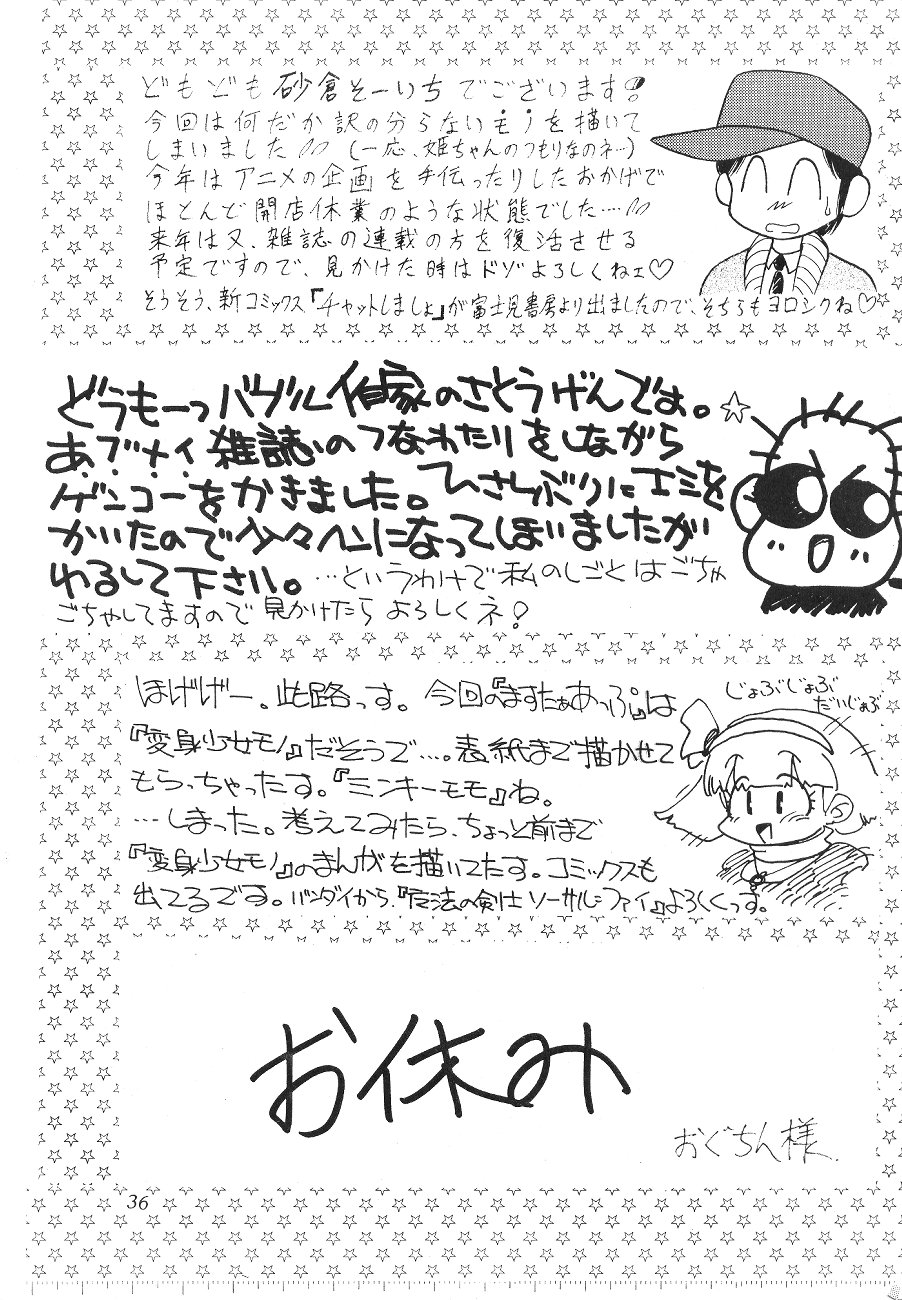 どもども 砂倉そーいち でございます!
今回は何だか訳の分らないモノを描いて
しまいました (一応、姫ちゃんのつもりなのネ…)
今年は アニメの企画 を手伝ったりしたおかげで
ほとんど 開店休業 のような状態でした…
来年は又、雑誌の連載の方を復活させる
予定ですので、見かけた時は ドゾ よろしくねェ♡
そうそう、新コミックス『チャットしましょ』が富士見書房より出ましたので、そちらもヨロシクね♡
どうもーっバヅル作家のさとうげんでお。☆
あ.ブ.ナ.イ 雑誌のつなわたりをしながら
ゲンコーをかきました。ひさしぶりにエミを
かいたので少々ヘンになってしまいましたが
わるして下さい。…というわけで私のしごとはごちゃ
ごちゃしてますので見かけたら よろしくネ!
ほげげー。此路っす。今回の『ますたぁあっぷ』は
『変身少女モノ』だそうで…。表紙まで描かせて
もらっちゃったす。『ミンキーモモ』ね。
…しまった。考えてみたら、ちょっと前まで
『変身少女モノ』のまんがを描いてたす。コミックスも
出てるです。バンダイから『魔法の剣士 ソーサル=ファイ』よろくくっす。
じょぶじょぶ
だいじょぶ
お休み
おぐちん様
36